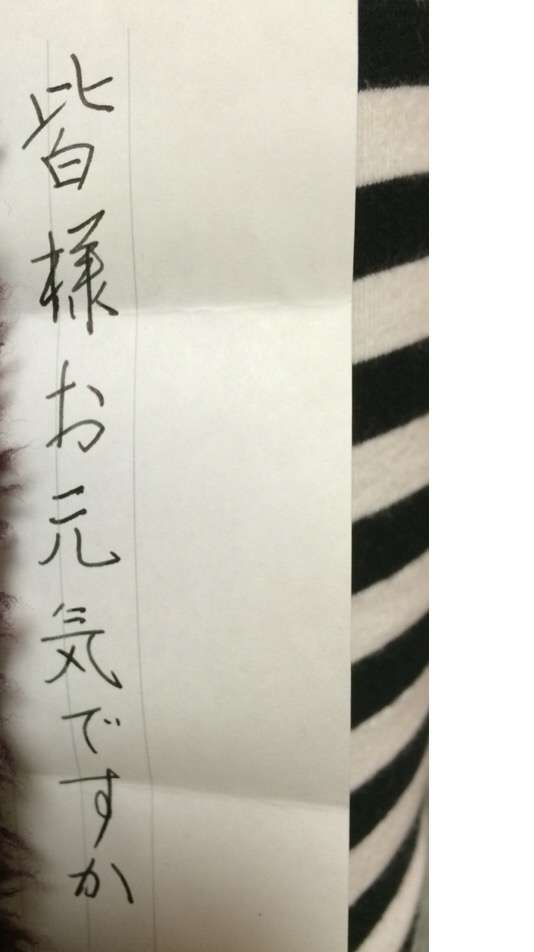 皆様お元気ですか